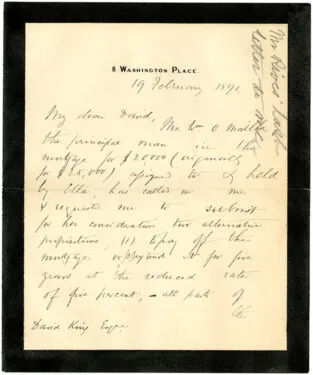 8 WASHINGTON PLACE.
19 February 1891.
Mr Rives' last
letter to
My dear David,
Mr. Wm O
the principal man in the
mortgage for $20,000 (originally
for $ ) assigned to & held
by Ella, has called on me
& requested me to submit
for her consideration two alternative
propositions, (1) to pay off the
mortgage or (2) extend it for five
years at the reduced rate
of five percent, – all parts of
David King Esqr.